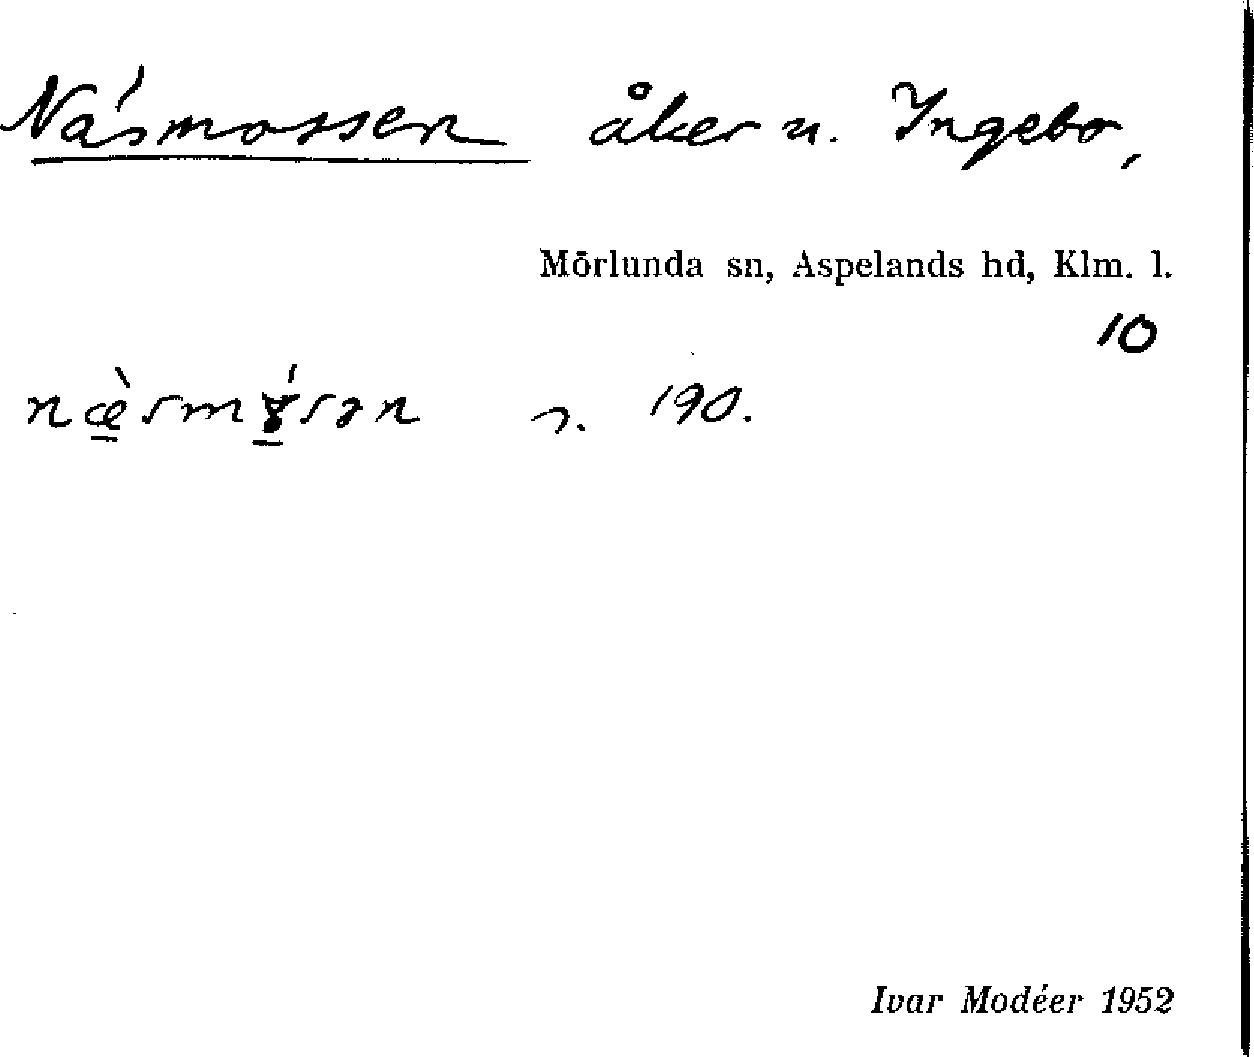 Näsmossen åker u. Ingebo,
Mörlunda sn, Aspelands hd, Klm. l.
10
190.
Ivar Modéer 1952